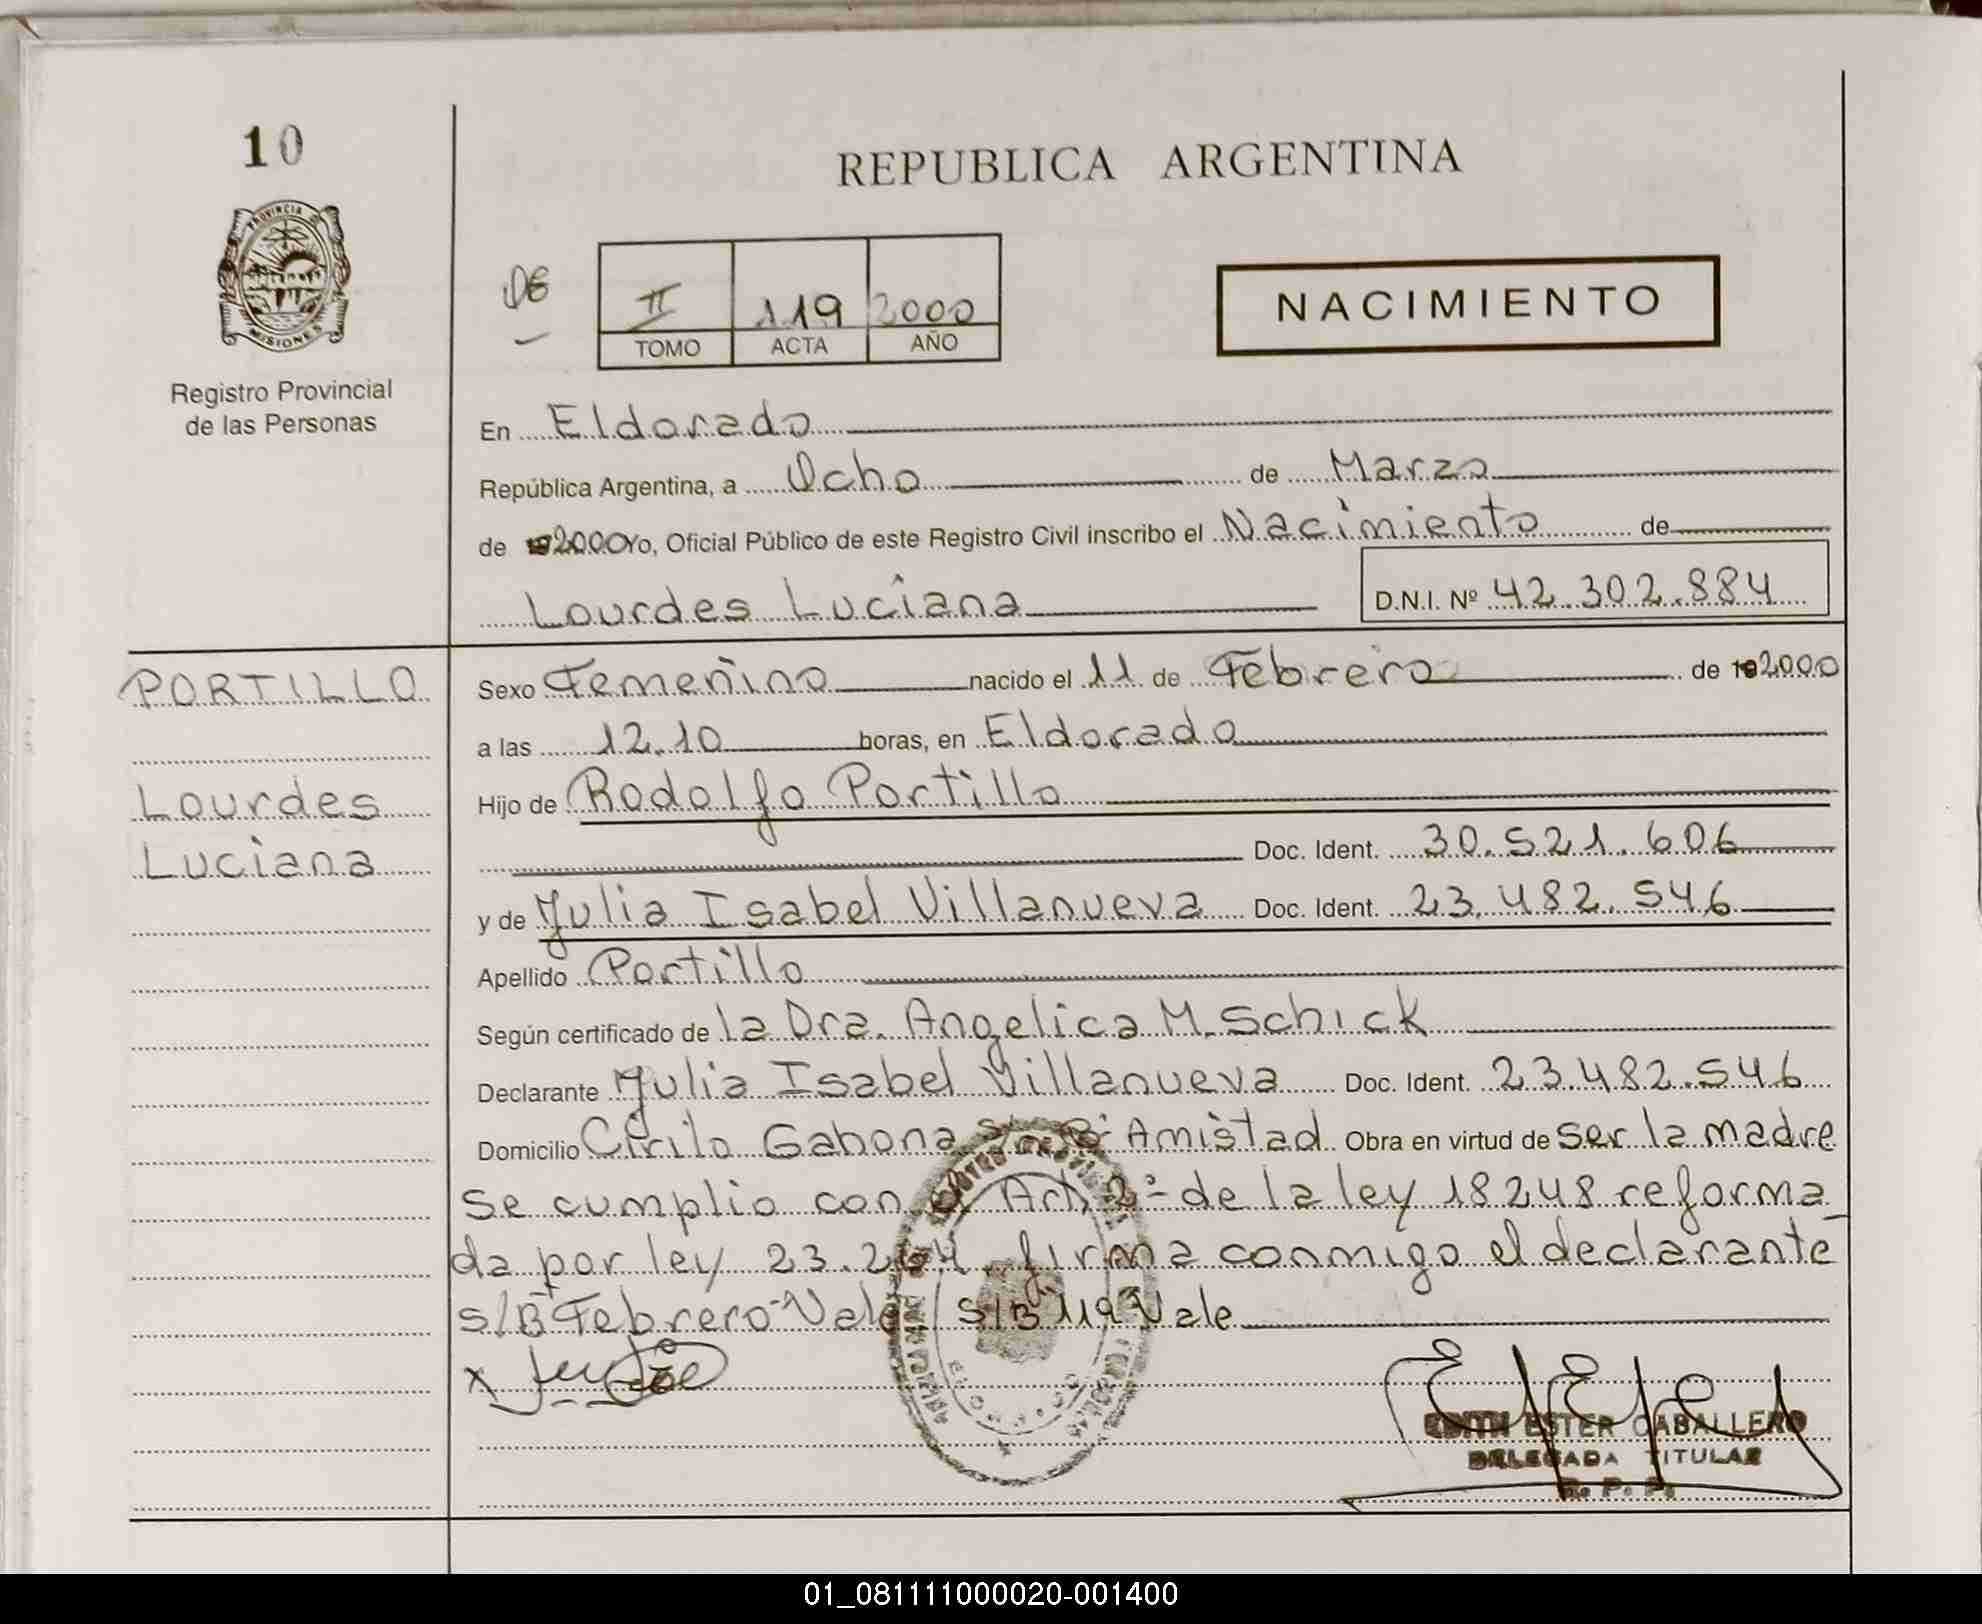 10
REPUBLICA ARGENTINA
PROVINCIA DE
MISIONES
Registro Provincial
de las Personas
II 119 2000
TOMO ACTA AÑO
NACIMIENTO
En Eldorado
República Argentina, a Ocho de Marzo
de 2000 Yo, Oficial Público de este Registro Civil inscribo el Nacimiento de
Lourdes Luciana D.N.I. Nº 42.302.884
PORTILLO
Lourdes
Luciana
Sexo Femenino nacido el 11 de Febrero de 192000
a las 12.10 horas, en Eldorado
Hijo de Rodolfo Portillo
Doc. Ident. 30.521.606
y de Yulia Isabel Villanueva Doc. Ident. 23.482.546
Apellido Portillo
Según certificado de la Dra. Angelica M. Schick
Declarante Yulia Isabel Villanueva Doc. Ident. 23.482.546
Domicilio Cirilo Gabona Bº Amistad Obra en virtud de ser la madre
Se cumplio con el Art. 2º de la ley 18248 reforma
da por ley 23.264 firma conmigo el declarante
s/Bº Febrero-Vale / S/B 119 Vale
x
EDITH ESTER CABALLERO
DELEGADA TITULAR
R. P. P.
01_081111000020-001400